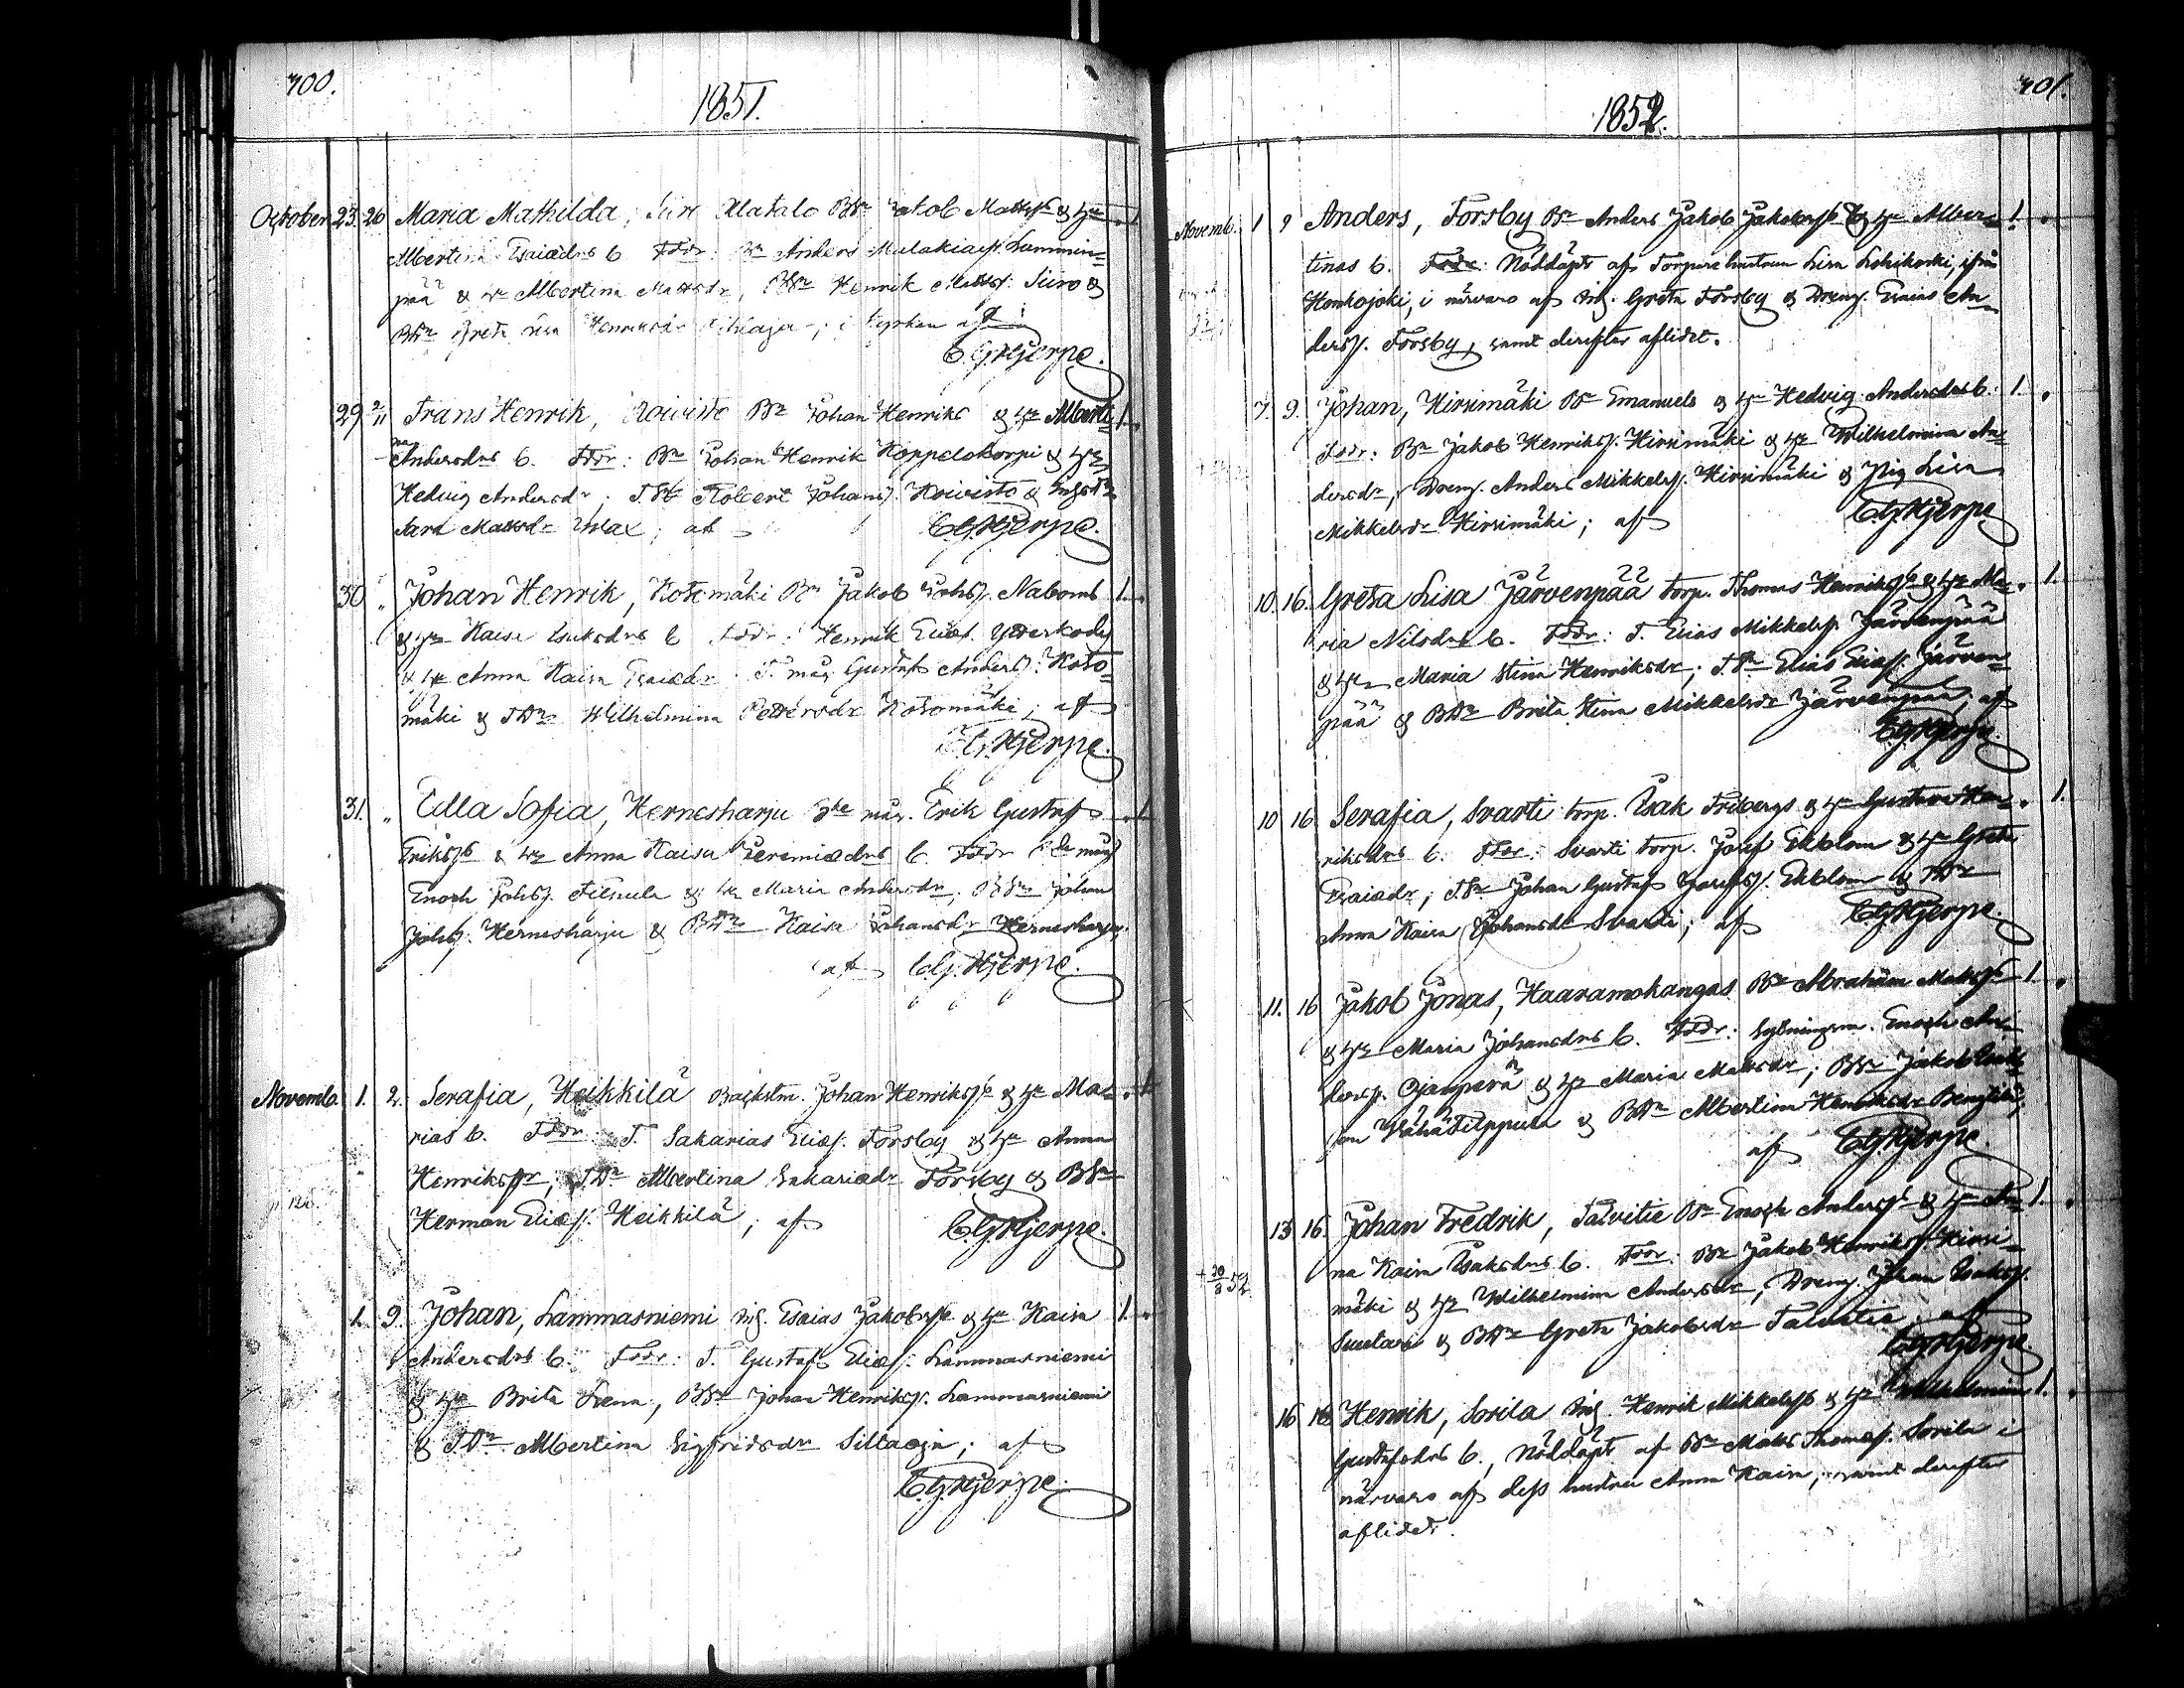 300.
1851.
October 23. 26. Maria Mathilda, Alatalo Bdr Jakob Mattss. & hu
Albertina Esaiædrs b. Fddr: Br Anders Malakiaess. Lammin-
pää & hu Albertina Mattsdr, BSr Henrik Mattss. Siiro &
BDr Greta Lisa Henriksdr i kyrkan af
C. G. Hjerpe.
29 2/11 Frans Henrik, Koivisto Br Johan Henriks & hu Alberti- 1.
na Andersdrs b. Fddr: Br Johan Henrik Koppelokorpi & hu
Hedvig Andersdr. Robert Johanss. Koivisto &
Sara Mattsdr af C. G. Hjerpe.
30 „ Johan Henrik, Kotomäki Br Jakob Johss. Naboms 1.
& hu Kaisa Isaksdrs b. Fddr: Henrik Eliæs. Ytterkody
& hu Anna Kaisa Esaiædr. Gustaf Anderss. Koto-
mäki & TDr Wilhelmina Pettersdr Kotomäki; af
C. G. Hjerpe.
31. „ Edla Sofia, Hernesharju Erik Gustaf 1.
Erikss. & hu Anna Kaisa Jeremiædrs b. Fddr
Enoch Johss. Filpula & hu Maria Andersdr; BSr Johan
Johss. Hernesharju & BDr Kaisa Johansdr Hernesharju,
af C. G. Hjerpe.
Novemb. 1. 2. Serafia, Heikkilä Backstm. Johan Henrikss. & hu Ma- 1.
rias b. Fddr: T. Sakarias Eliæs. Forsby & hu Anna
Henriksdr; TDr Albertina Sakariædr Forsby & BSr
Herman Eliæs. Heikkilä; af C. G. Hjerpe.
1. 9. Johan, Lammasniemi Inh. Esaias Jakobss. & hu Kaisa 1.
Andersdrs b. Fddr: T. Gustaf Eliæs. Lammasniemi
& hu Brita Lena, BSr Johan Henrikss. Lammasniemi
& TDr Albertina Sigfridsdr Siltaoja; af
C. G. Hjerpe.
301.
1852.
Novemb. 1 9 Anders, Forsby Br Anders Jakob Jakobss. & hu Alber- 1.
tinas b. Fddr: Nöddöpt af Torpare hustrun Lisa Lohikoski, ifrån
Honkojoki, i närvaro af Inh. Greta Forsby & Dreng. Esaias An-
derss. Forsby, samt derefter aflidet.
7. 9. Johan, Hirsimäki Br Emanuels & hu Hedvig Andersdrs b. 1.
Fddr: Br Jakob Henrikss. Hirsimäki & hu Wilhelmina An-
dersdr, Dreng. Anders Mikkelss. Hirsimäki & Pig. Lisa
Mikkelsdr Hirsimäki; af C. G. Hjerpe
10. 16. Greta Lisa Järvenpää torp. Thomas Henrikss. & hu Ma- 1.
ria Nilsdrs b. Fddr: T. Elias Mikkelss. Järvenpää
& hu Maria Stina Henriksdr; TSr Elias Eliæs. Järven-
pää & BDr Brita Stina Mikkelsdr Järvenpää; af
C. G. Hjerpe.
10 16 Serafia, Svarti torp. Isak Fribergs & hu Gustava Hen- 1.
riksdrs b. Fddr: Svarti torp. Josef Ekblom & hu Greta
Esaiædr; TSr Johan Gustaf Josefss. Ekblom & TDr
Anna Kaisa Johansdr Svarti; af C. G. Hjerpe.
11. 16 Jakob Jonas, Haaramokangas Br Abraham Matss. 1.
& hu Maria Johansdrs b. Fddr: Sytningsm. Enoch An-
derss. Ojanperä & hu Maria Matsdr; BSr Jakob
son VähäFilppula & BDr Albertina Henriksdr
af C. G. Hjerpe.
13 16. Johan Fredrik, Talvitie Br Enoch Anderss. & hu An- 1.
na Kaisa Isaksdrs b. Fddr: Br Jakob Henrikss. Hirsi-
† 20/8 52 mäki & hu Wilhelmina Andersdr, Dreng. Johan Isakss.
& BDr Greta Jakobsdr Talvitie; af
C. G. Hjerpe.
16 16 Henrik, Sorila Inh. Henrik Mikkelss. & hu Wilhelmina 1.
Gustafsdrs b., Nöddöpt af Br Matts Thomæs. Sorila i
närvaro af dess hustru Anna Kaisa, samt derefter
aflidet.